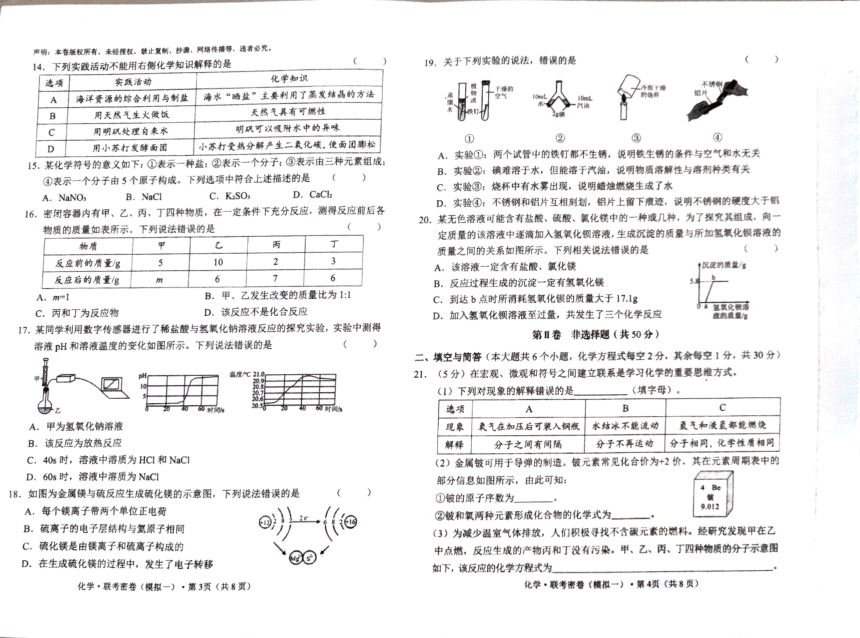 声明：本卷版权所有，未经授权，禁止复制、抄袭、网络传播等，违者必究。
14．下列实践活动不能用右侧化学知识解释的是 （ ）
选项 实践活动 化学知识
A 海洋资源的综合利用与制盐 海水“晒盐”主要利用了蒸发结晶的方法
B 用天然气生火做饭 天然气具有可燃性
C 用明矾处理自来水 明矾可以吸附水中的异味
D 用小苏打发酵面团 小苏打受热分解产生二氧化碳，使面团膨松
15．某化学符号的意义如下：①表示一种盐；②表示一个分子；③表示由三种元素组成；
④表示一个分子由 5 个原子构成。下列选项中符合上述描述的是 （ ）
A．NaNO₃ B．NaCl C．K₂SO₃ D．CaCl₂
16．密闭容器内有甲、乙、丙、丁四种物质，在一定条件下充分反应，测得反应前后各
物质的质量如表所示。下列说法错误的是 （ ）
物质 甲 乙 丙 丁
反应前的质量/g 5 10 2 3
反应后的质量/g m 6 7 6
A．m=1 B．甲、乙发生改变的质量比为 1:1
C．丙和丁为反应物 D．该反应不是化合反应
17．某同学利用数字传感器进行了稀盐酸与氢氧化钠溶液反应的探究实验，实验中测得
溶液 pH 和溶液温度的变化如图所示。下列说法错误的是 （ ）
甲 乙
pH 10 5 0 20 40 60 时间/s
温度/℃ 21.0 20.9 20.8 20.7 20.6 20.5 0 20 40 60 时间/s
A．甲为氢氧化钠溶液
B．该反应为放热反应
C．40s 时，溶液中溶质为 HCl 和 NaCl
D．60s 时，溶液中溶质为 NaCl
18．如图为金属镁与硫反应生成硫化镁的示意图，下列说法错误的是 （ ）
A．每个镁离子带两个单位正电荷
B．硫离子的电子层结构与氩原子相同
C．硫化镁是由镁离子和硫离子构成的
D．在生成硫化镁的过程中，发生了电子转移
+12 2e⁻ +16
化学·联考密卷（模拟一）·第 3页（共 8 页）
19．关于下列实验的说法，错误的是 （ ）
蒸馏水 植物油 铁钉 干燥的空气
10mL水 10mL汽油
冷而干燥的烧杯
不锈钢 铝片
① ② ③ ④
A．实验①：两个试管中的铁钉都不生锈，说明铁生锈的条件与空气和水无关
B．实验②：碘难溶于水，但能溶于汽油，说明物质溶解性与溶剂种类有关
C．实验③：烧杯中有水雾出现，说明蜡烛燃烧生成了水
D．实验④：不锈钢和铝片互相刻划，铝片上留下痕迹，说明不锈钢的硬度大于铝
20．某无色溶液可能含有盐酸、硫酸、氯化镁中的一种或几种，为了探究其组成，向一
定质量的该溶液中逐滴加入氢氧化钡溶液，生成沉淀的质量与所加氢氧化钡溶液的
质量之间的关系如图所示。下列相关说法错误的是 （ ）
A．该溶液一定含有盐酸、氯化镁
B．反应过程生成的沉淀一定有氢氧化镁
C．到达 b 点时所消耗氢氧化钡的质量大于 17.1g
D．加入氢氧化钡溶液至过量，共发生了三个化学反应
沉淀的质量/g
5.8 b
0 a 氢氧化钡溶液的质量/g
第Ⅱ卷 非选择题（共 50 分）
二、填空与简答（本大题共 6 个小题，化学方程式每空 2 分，其余每空 1 分，共 30 分）
21．（5 分）在宏观、微观和符号之间建立联系是学习化学的重要思维方式。
（1）下列对现象的解释错误的是________（填字母）。
选项 A B C
现象 氧气在加压后可装入钢瓶 水结冰不能流动 氢气和液氢都能燃烧
解释 分子之间有间隔 分子不再运动 分子相同，化学性质相同
（2）金属铍可用于导弹的制造。铍元素常见化合价为+2 价，其在元素周期表中的
部分信息如图所示，由此可知：
①铍的原子序数为________。
②铍和氧两种元素形成化合物的化学式为________。
4 Be
铍
9.012
（3）为减少温室气体排放，人们积极寻找不含碳元素的燃料。经研究发现甲在乙
中点燃，反应生成的产物丙和丁没有污染。甲、乙、丙、丁四种物质的分子示意图
如下，该反应的化学方程式为________。
化学·联考密卷（模拟一）·第 4页（共 8 页）